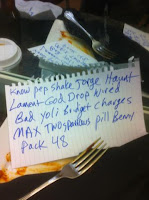 Know pep shake Jorge Haunt
Lament God Drop Wired
Bad Yoli Budget Charges
MAX Two sparkless pill Benny
Pack 48